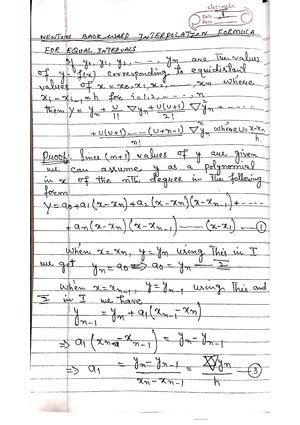 Date
Page 1
NEWTONS BACKWARD INTERPOLATION FORMULA
FOR EQUAL INTERVALS
If y₀, y₁, y₂, ..... yₙ are the values
of y=f(x) corresponding to equidistant
values of x = x₀, x₁, x₂, ....., xₙ where
xᵢ - xᵢ₋₁ = h for i=1,2,.....,n
then y = yₙ + U/1! ∇yₙ + U(U+1)/2! ∇²yₙ + .....
+ U(U+1)....(U+n-1)/n! ∇ⁿyₙ where U = x-xₙ/h
Proof: Since (n+1) values of y are given
we can assume y as a polynomial
in x of the nth degree in the following
form
Y = a₀ + a₁(x-xₙ) + a₂(x-xₙ)(x-xₙ₋₁) + .....
+ aₙ(x-xₙ)(x-xₙ₋₁) ——— (x-x₁) — ①
when x=xₙ, y=yₙ using this in I
we get yₙ = a₀ ⇒ a₀ = yₙ — II
when x=xₙ₋₁, y=yₙ₋₁ using this and
II in I we have
yₙ₋₁ = yₙ + a₁(xₙ₋₁ - xₙ)
⇒ a₁(xₙ - xₙ₋₁) = yₙ - yₙ₋₁
⇒ a₁ = yₙ - yₙ₋₁/xₙ - xₙ₋₁ = ∇yₙ/h — ③